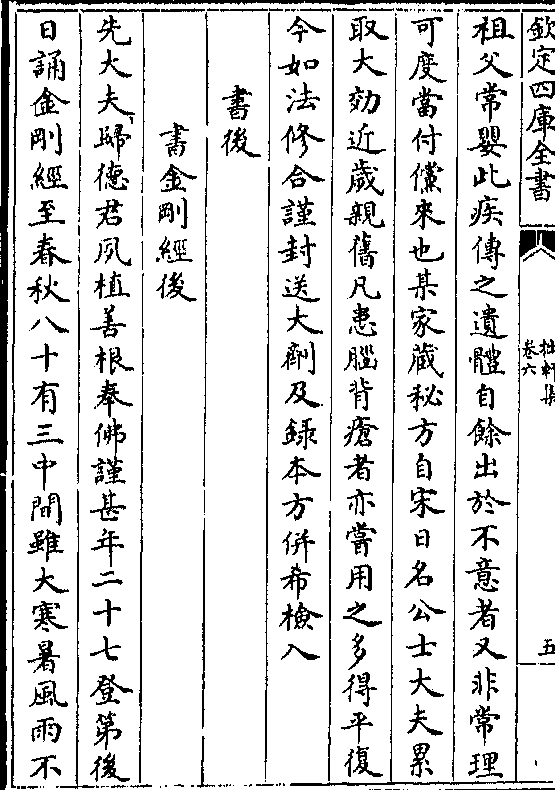 欽定四庫全書
拙軒集
卷六
五
祖父常嬰此疾傳之遺體自餘出於不意者又非常理
可度當付儻來也某家藏秘方自宋日名公士大夫累
取大効近歲親舊凡患腦背瘡者亦嘗用之多得平復
今如法修合謹封送大劑及録本方併希檢入
書後
書金剛經後
先大夫歸德君夙植善根奉佛謹甚年二十七登第後
日誦金剛經至春秋八十有三中間雖大寒暑風雨不